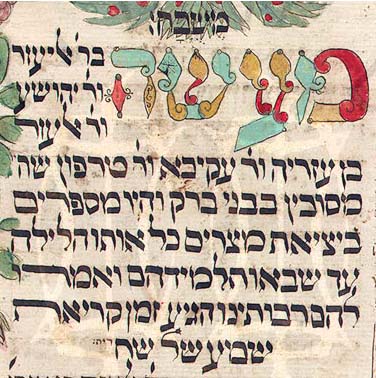 מעשה בר' אליעזר
ור' יהושע
ור' אלעזר
בן עזריה ור' עקיבא ור' טרפון שהי'
מסובין בבני ברק והיו מספרים
ביציאת מצרים כל אותו הלילה
עד שבאו תלמידהם ואמרו
להם רבותינו הגיע זמן קריאת
שמע של שחרית